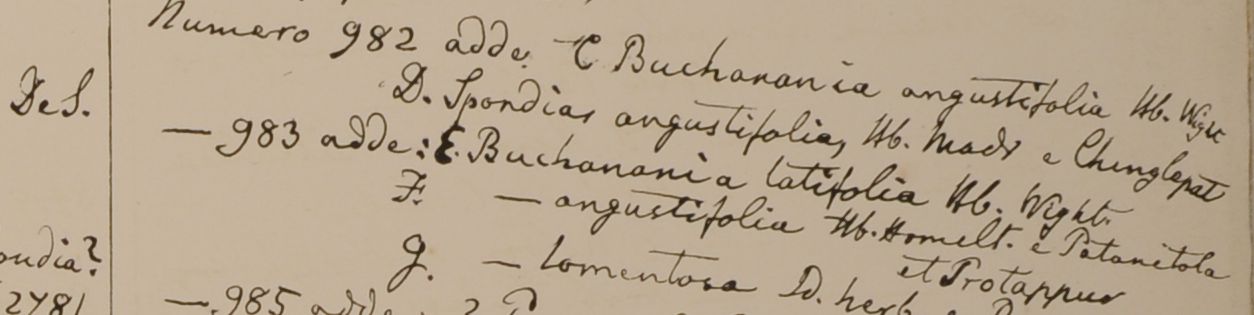 Numero 982 adde C Buchanania angustifolia Hb. Wight
DeS.
D. Spondias angustifolia, Hb. Madr e Chinglepat
— 983 adde: E. Buchanania latifolia Hb. Wight.
F. — angustifolia Hb. Hamilt. e Patanitola
et Protappur
ondia?
G. — tomentosa Id. herb. e
2781
— 985 adde